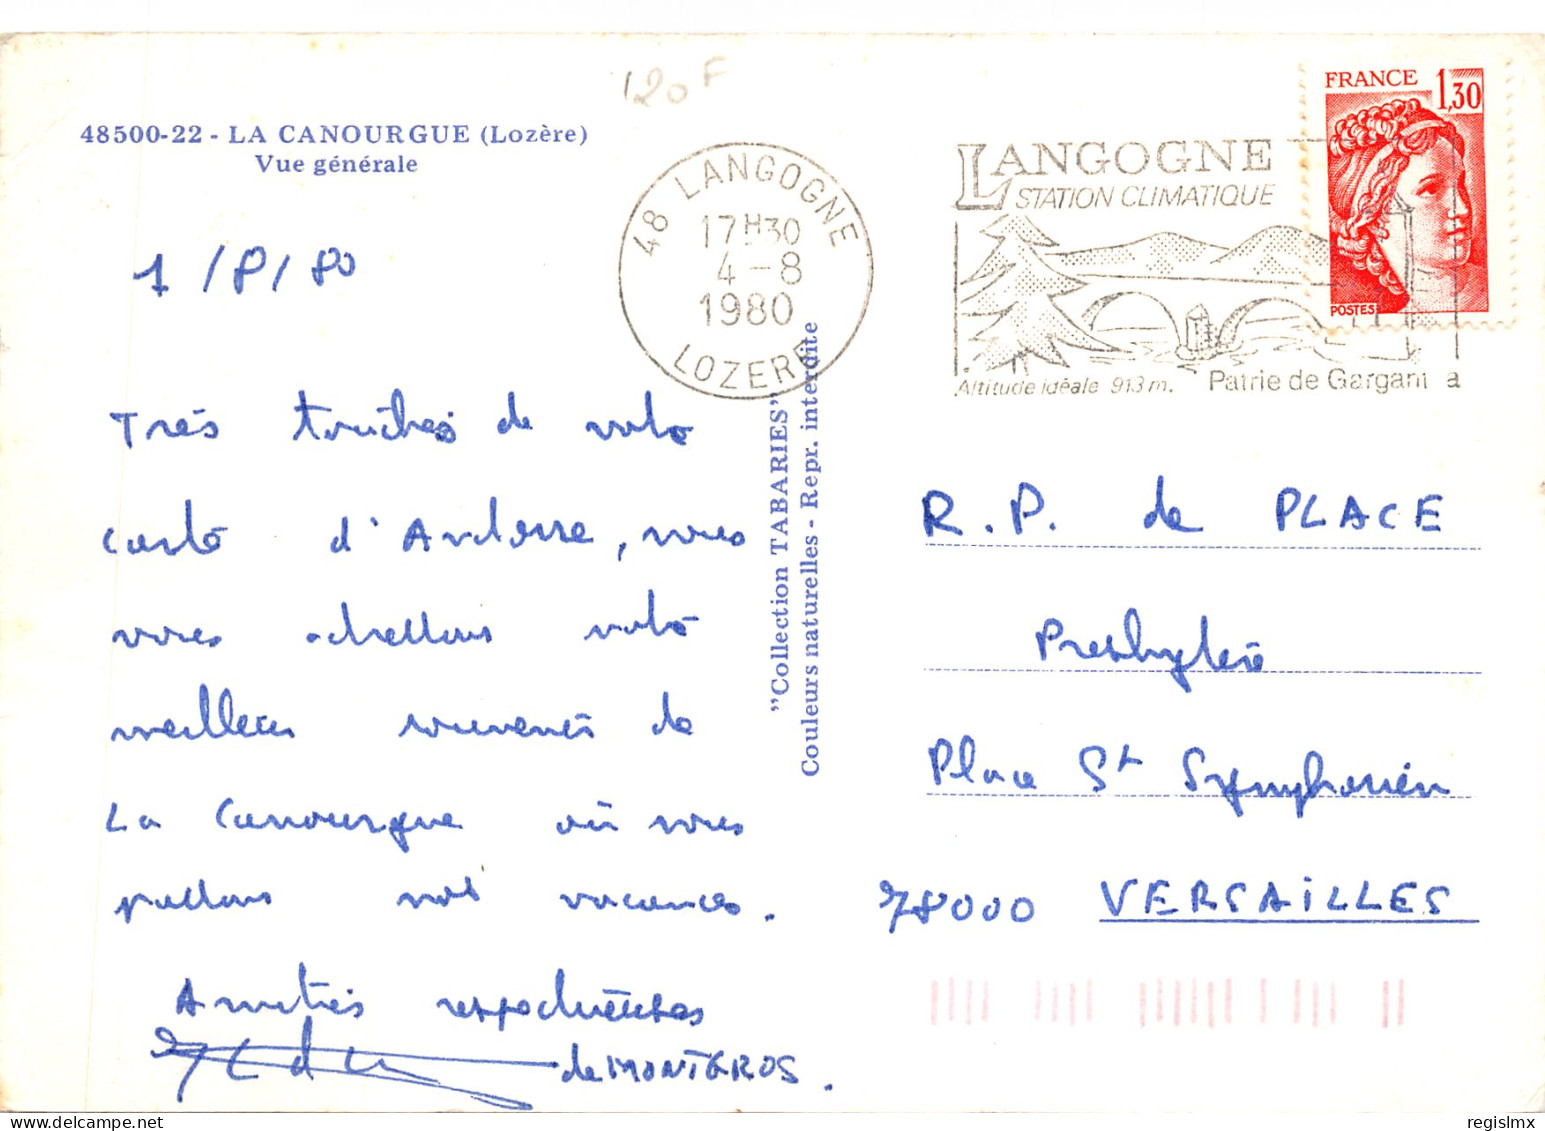 120F
48500-22 - LA CANOURGUE (Lozère)
Vue générale
1/8/80
Très touchés de votre
carte d'Andorre, nous
vous adressons votre
meilleurs souvenirs de
La Canourgue où nous
passons nos vacances.
Amitiés respectueuses
de MONTGROS.
"Collection TABARIES"
Couleurs naturelles - Repr. interdite
48 LANGOGNE
17H30
4-8
1980
LOZERE
LANGOGNE
STATION CLIMATIQUE
Altitude idéale 913 m. Patrie de Gargant a
FRANCE 1,30
POSTES
R.P. de PLACE
Presbytère
Place St Symphorien
78000 VERSAILLES
delcampe.net
regislmx